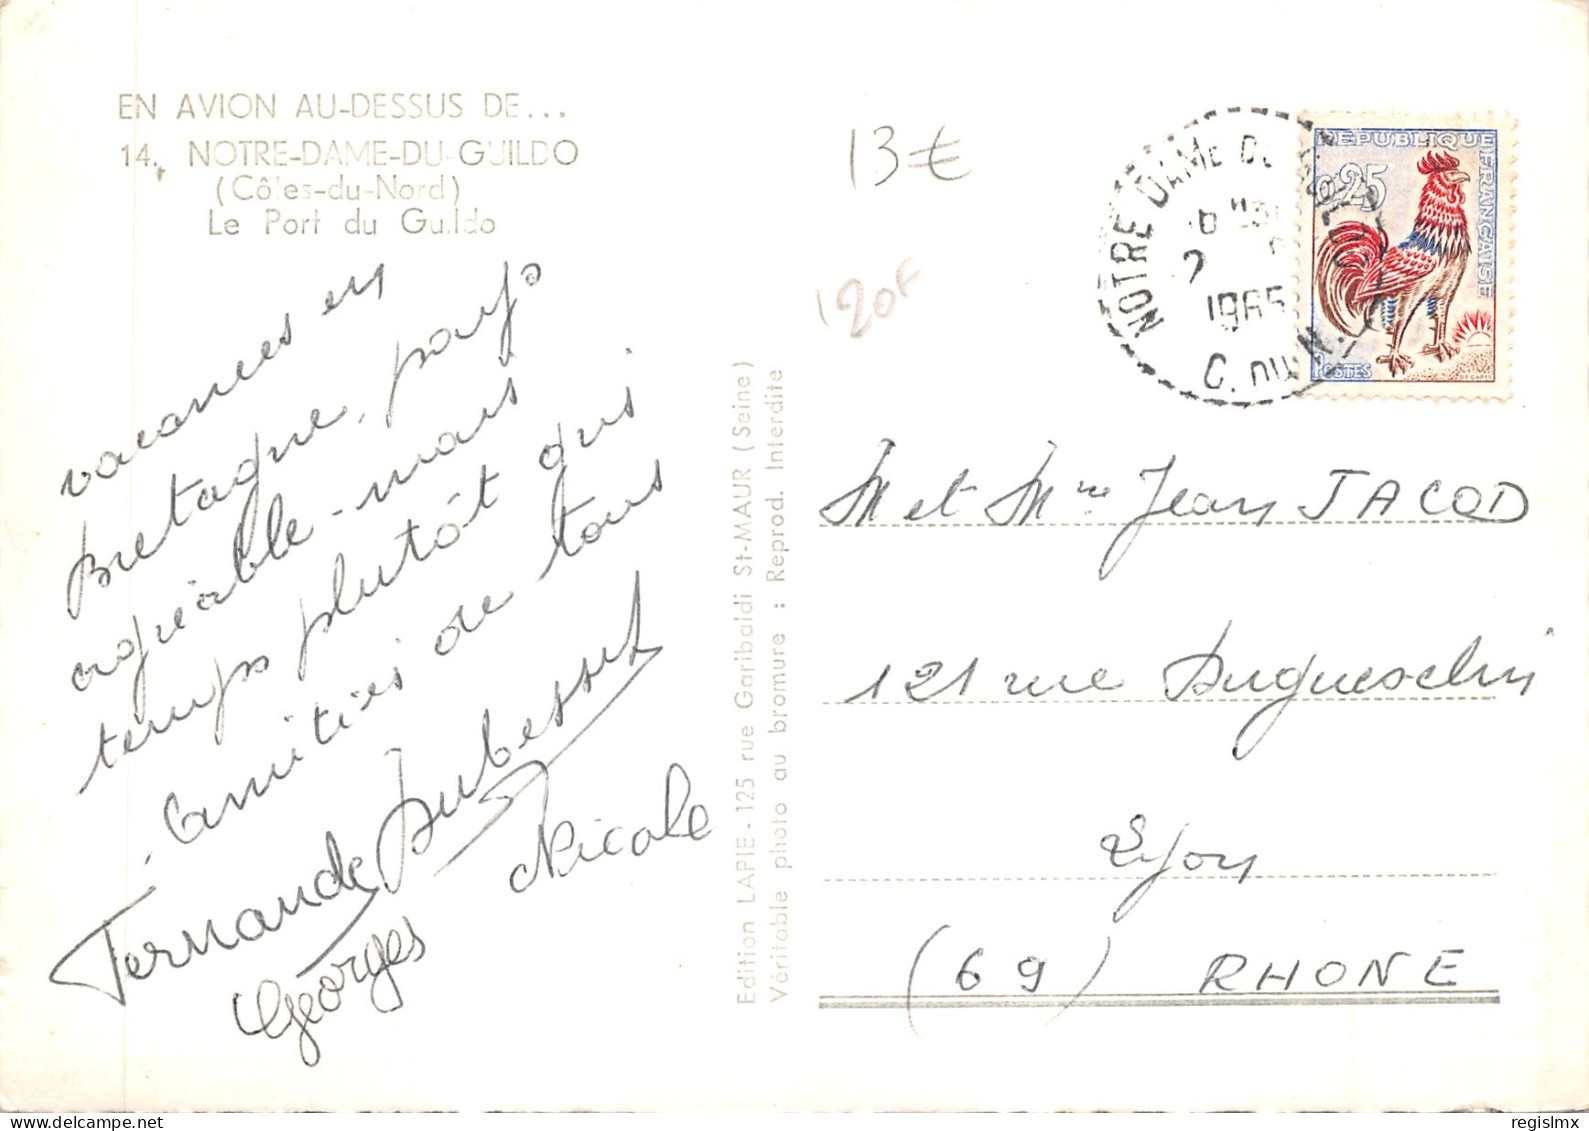 EN AVION AU-DESSUS DE...
14. NOTRE-DAME-DU-GUILDO
(Côtes-du-Nord)
Le Port du Guildo
vacances en
Bretagne, pays
agréable - mais
temps plutôt gris
Amitiés de tous
Fernande Dubessset
Georges
Nicole
Edition LAPIE - 125 rue Garibaldi St-MAUR (Seine)
Véritable photo au bromure : Reprod. Interdite
13 €
120F
NOTRE DAME DU GUILDO
1965
C. DU N.
REPUBLIQUE FRANCAISE
0,25
POSTES
DECARIS
M et Mme Jean JACOD
121 rue Duguesclin
Lyon
(69) RHONE
regislmx